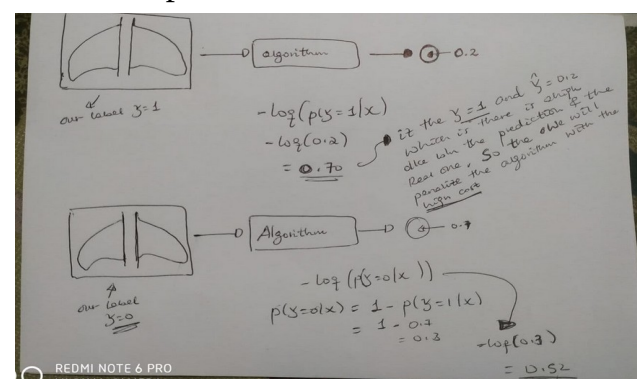 algorithm
0.2
our label y=1
-log(p(y=1|x)
-log(0.2)
= 0.70
if the y=1 and ŷ=0.2
which is there is a high
dce wh the prediction & the
Real one. So the we will
penalize the algorithm with the
high cost
Algorithm
0.7
our label
y=0
-log (p(y=0|x))
p(y=0|x) = 1 - p(y=1|x)
= 1 - 0.7
= 0.3
-log(0.3)
= 0.52
REDMI NOTE 6 PRO